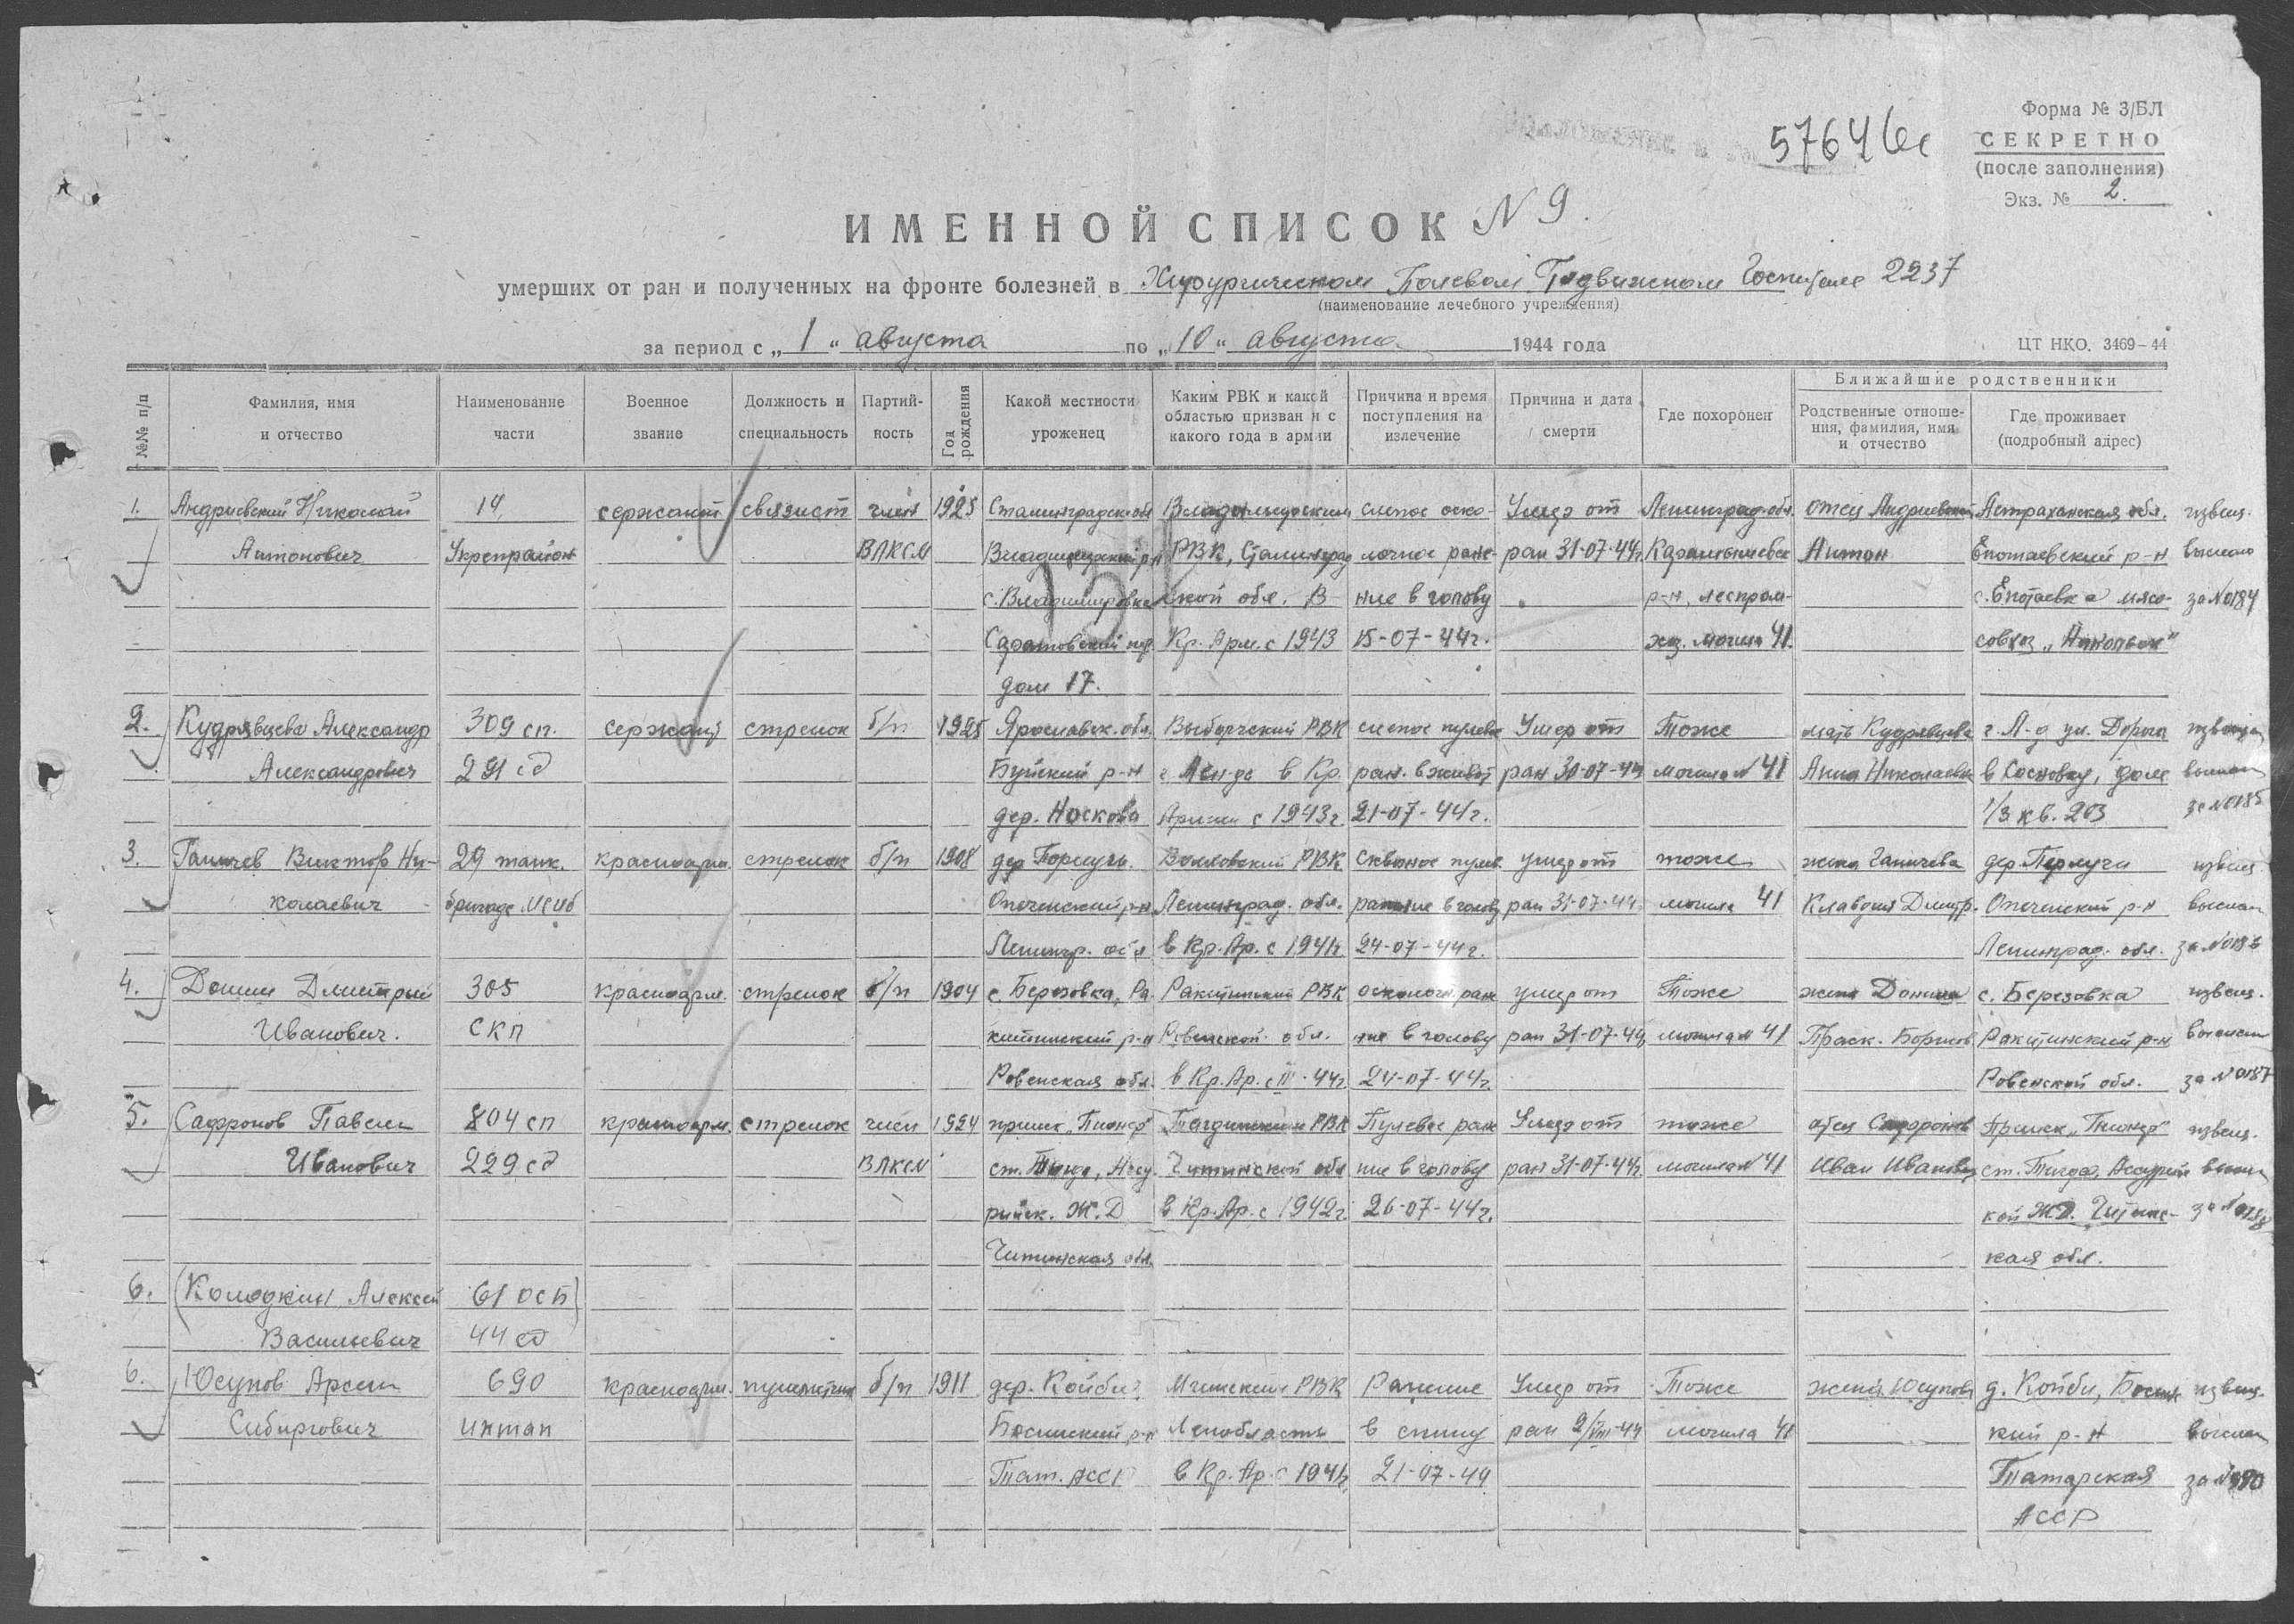 Форма № 3/БЛ
57646с
СЕКРЕТНО
(после заполнения)
Экз. № 2.
ИМЕННОЙ СПИСОК N 9.
умерших от ран и полученных на фронте болезней в Хирургическом Полевом Подвижном Госпитале 2237
(наименование лечебного учреждения)
за период с „1“ августа по „10“ августа 1944 года
ЦТ НКО. 3469–44
№№ п/п
Фамилия, имя и отчество
Наименование части
Военное звание
Должность и специальность
Партийность
Год рождения
Какой местности уроженец
Каким РВК и какой областью призван и с какого года в армии
Причина и время поступления на излечение
Причина и дата смерти
Где похоронен
Ближайшие родственники
Родственные отношения, фамилия, имя и отчество
Где проживает (подробный адрес)
1. Андриевский Николай 14 сержант связист член 1925 Сталинградск. обл Владимировским слепое оско- Умер от Ленинград. обл. отец Андриевский Астраханская обл. извещ.
Антонович Укрепрайон ВЛКСМ Владимирский р-н РВК, Сталинград лочное ране- ран 31-07-44г. Антон Енотаевский р-н выслано
с. Владимировка ской обл. В ние в голову р-н, леспром- с. Енотаевка мясо- за №0184
Кр. Арм. с 1943 15-07-44г. хоз. могила 41. совхоз
дом 17.
2. Кудрявцева Александр 309 сп. сержант стрелок б/п 1925 Ярославск. обл. Выборгский РВК слепое пулевое Умер от Тоже мать Кудрявцева г. Л-д ул. Дорога извещен
Александрович 291 сд Буйский р-н г. Лен-да в Кр. ран. в живот ран 30-07-44 могила № 41 Анна Николаевна в Сосновку, дом выслан
дер. Носкова Армии с 1943г. 21-07-44г. 1/3 кв. 203 за №0185
3. Ганичев Виктор Ни- 29 танк. красноарм. стрелок б/п 1908 дер Волховский РВК Сквозное пулев. умер от тоже жена Ганичева дер извещ
колаевич бригада МСПб р-н Ленинград. обл. ранение в голову ран 31-07-44. могила 41 Клавдия Дмитр. р-н выслан
Ленингр. обл в Кр. Ар. с 1941г. 24-07-44г. Ленинград. обл. за №0186
4. Донин Дмитрий 305 красноарм. стрелок б/п 1904 с. Березовка, Ра- Ракитинский РВК осколочн. ране умер от Тоже жена Донина с. Березовка извещ.
Иванович. СКП китинский р-н Ровенской обл. ние в голову ран 31-07-44г могила № 41 Праск. Борисов Ракитинский р-н выслан
Ровенская обл. в Кр. Ар. с III-44г. 24-07-44г. Ровенской обл. за №0187
5. Сафронов Павел 804 сп красноарм. стрелок член 1924 прииск „Пионер“ РВК Пулевое ран Умер от тоже отец Сафронов Прииск „Пионер“ извещ.
Иванович 229 сд ВЛКСМ ст. Тыгда, Амур Читинской обл ние в голову ран 31-07-44г. могила № 41 Иван Иванович ст. Тыгда, выслан
рийск. Ж.Д в Кр. Ар. с 1942г. 26-07-44г. кой ЖД. Читинс- за №0188
Читинская обл. кая обл.
6. (Колодкин Алексей 61 осб)
Васильевич 44 сд
6. Юсупов Арсен 690 красноарм. пулеметчик б/п 1911 дер. Койби Мгинским РВК Ранение Умер от Тоже жена Юсупова д. Койби, извещ.
Сибирович интап р-н Ленобласть в спину ран 2/VIII-44 могила 41 кий р-н выслан
Тат. АССР в Кр. Ар. с 1941г. 21-07-44 Татарская
АССР